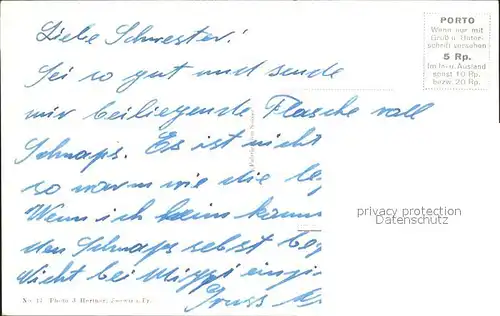 Liebe Schwester!
Sei so gut und sende
mir beiliegende Flasche voll
Schnaps. Es ist nicht
so warm wie die
Wenn ich heim komm
den Schnaps selbst
Nicht bei
Gruss
PORTO
Wenn nur mit
Gruß u. Unter-
schrift versehen
5 Rp.
Im In- u. Ausland
sonst 10 Rp.
bezw. 20 Rp.
privacy protection
OldThing.de